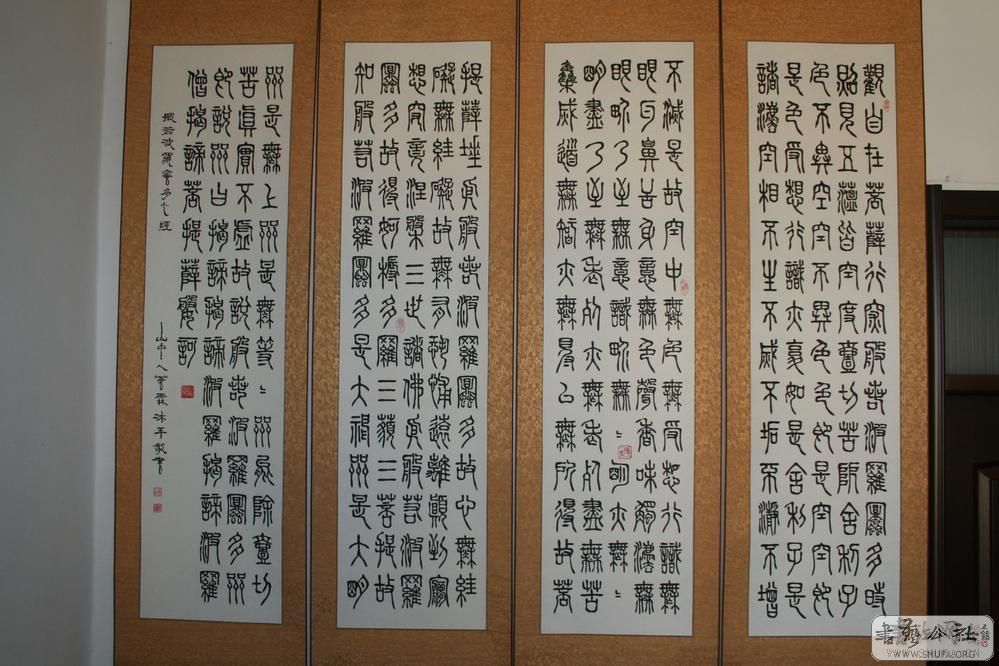 觀自在菩薩行深般若波羅蜜多時
照見五蘊皆空度壹切苦厄舍利子
色不異空空不異色色即是空空即
是色受想行識亦復如是舍利子是
諸法空相不生不滅不垢不淨不增
不減是故空中無色無受想行識無
眼耳鼻舌身意無色聲香味觸法無
眼界乃至無意識界無〻明亦無〻
明盡乃至無老死亦無老死盡無苦
集滅道無智亦無得以無所得故菩
提薩埵依般若波羅蜜多故心無罣
礙無罣礙故無有恐怖遠離顛倒夢
想究竟涅槃三世諸佛依般若波羅
蜜多故得阿耨多羅三藐三菩提故
知般若波羅蜜多是大神咒是大明
咒是無上咒是無等〻咒能除壹切
苦真實不虛故說般若波羅蜜多咒
即說咒曰揭諦揭諦波羅揭諦波羅
僧揭諦菩提薩婆訶
般若波羅蜜多心經
山中人沐手敬書
書藝公社
WWW.SHUFA.ORG